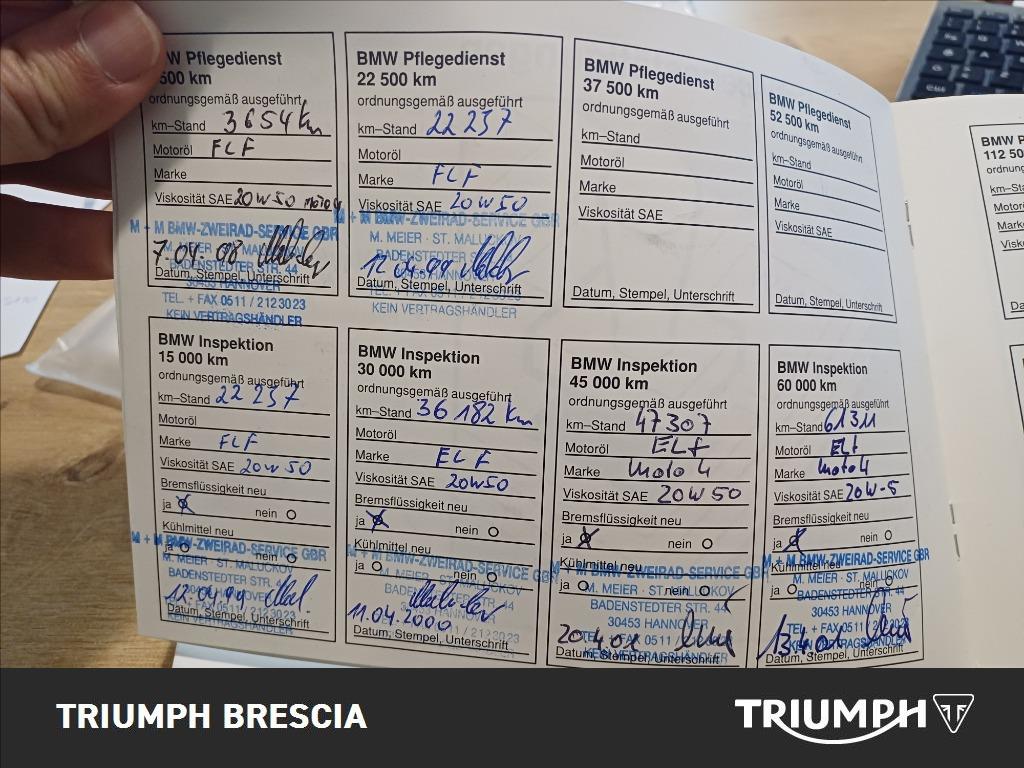 BMW Pflegedienst
500 km
ordnungsgemäß ausgeführt
km–Stand 3654 km
Motoröl ELF
Marke
Viskosität SAE 20W50
M + M BMW-ZWEIRAD-SERVICE GBR
M. MEIER · ST. MALUCKOV
BADENSTEDTER STR. 44
30453 HANNOVER
Datum, Stempel, Unterschrift
TEL. + FAX 0511 / 2123023
KEIN VERTRAGSHÄNDLER
BMW Pflegedienst
22 500 km
ordnungsgemäß ausgeführt
km–Stand 22 237
Motoröl
Marke ELF
Viskosität SAE 20W50
M + M BMW-ZWEIRAD-SERVICE GBR
M. MEIER · ST. MALUCKOV
BADENSTEDTER STR. 44
12.04.99
Datum, Stempel, Unterschrift
TEL. + FAX 0511 / 2123023
KEIN VERTRAGSHÄNDLER
BMW Pflegedienst
37 500 km
ordnungsgemäß ausgeführt
km–Stand
Motoröl
Marke
Viskosität SAE
Datum, Stempel, Unterschrift
BMW Pflegedienst
52 500 km
ordnungsgemäß ausgeführt
km–Stand
Motoröl
Marke
Viskosität SAE
Datum, Stempel, Unterschrift
BMW Inspektion
15 000 km
ordnungsgemäß ausgeführt
km–Stand 22 237
Motoröl
Marke ELF
Viskosität SAE 20W50
Bremsflüssigkeit neu
ja nein
Kühlmittel neu
ja nein
M + M BMW-ZWEIRAD-SERVICE GBR
M. MEIER · ST. MALUCKOV
BADENSTEDTER STR. 44
12.04.99
Datum, Stempel, Unterschrift
BMW Inspektion
30 000 km
ordnungsgemäß ausgeführt
km–Stand 36 182 km
Motoröl
Marke ELF
Viskosität SAE 20W50
Bremsflüssigkeit neu
ja nein
Kühlmittel neu
ja nein
M + M BMW-ZWEIRAD-SERVICE GBR
11.04.2000
Datum, Stempel, Unterschrift
BMW Inspektion
45 000 km
ordnungsgemäß ausgeführt
km–Stand 47307
Motoröl ELF
Marke Moto 4
Viskosität SAE 20W50
Bremsflüssigkeit neu
ja nein
Kühlmittel neu
ja nein
M + M BMW-ZWEIRAD-SERVICE GBR
M. MEIER · ST. MALUCKOV
BADENSTEDTER STR. 44
30453 HANNOVER
Datum, Stempel, Unterschrift
BMW Inspektion
60 000 km
ordnungsgemäß ausgeführt
km–Stand 61311
Motoröl ELF
Marke Moto 4
Viskosität SAE 20W-5
Bremsflüssigkeit neu
ja nein
Kühlmittel neu
ja nein
M + M BMW-ZWEIRAD-SERVICE GBR
M. MEIER · ST. MALUCKOV
BADENSTEDTER STR. 44
30453 HANNOVER
Datum, Stempel, Unterschrift
TRIUMPH BRESCIA
TRIUMPH